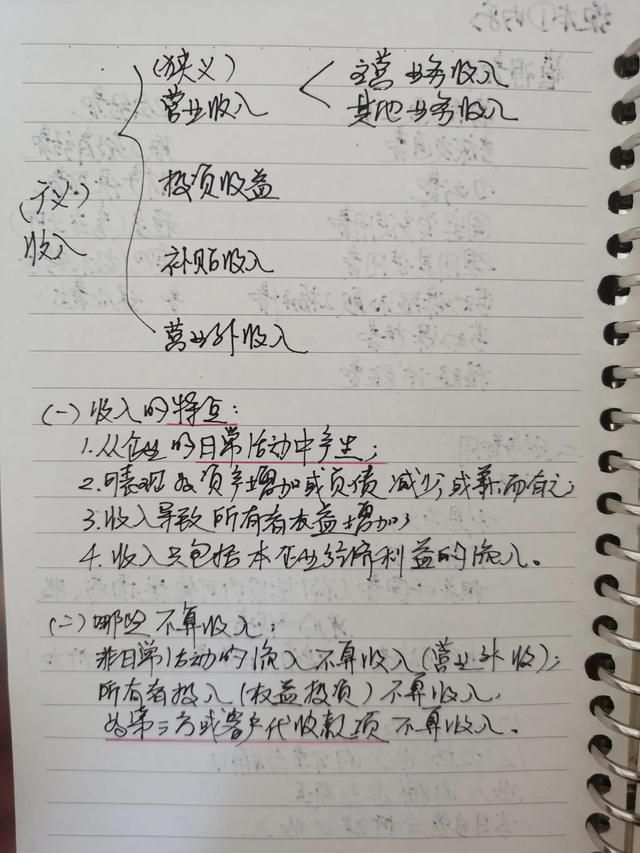 (狭义)
营业收入
主营业务收入
其他业务收入
投资收益
(广义)
收入
补贴收入
营业外收入
(一)收入的特点:
1.从企业的日常活动中产生;
2.可表现为资产增加或负债减少或兼而有之;
3.收入导致所有者权益增加;
4.收入只包括本企业经济利益的流入。
(二)哪些不算收入:
非日常活动的流入不算收入(营业外收);
所有者投入(权益投资)不算收入,
为第三方或客户代收款项不算收入。